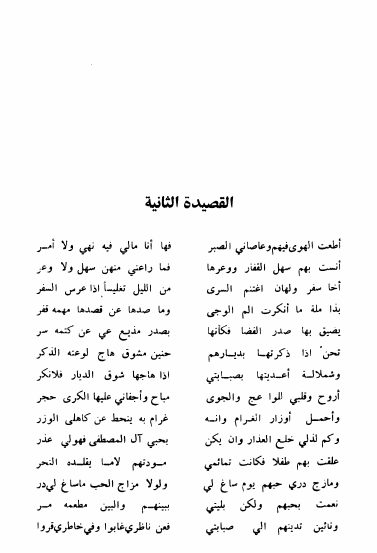 القصيدة الثانية
أطعت الهوى فيهم وعاصاني الصبر فها أنا مالي فيه نهي ولا أمر
أنست بهم سهل القفار ووعرها فما راعني منهن سهل ولا وعر
أخا سفر ولهان اغتنم السرى من الليل تغليساً إذا عرس السفر
بذا ملة ما أنكرت الم الوجى وما صدها عن قصدها مهمه قفر
يضيق بها صدر الفضا فكأنها بصدر مذيع عي عن كتمه سر
تحن اذا ذكرتها بديارهم حنين مشوق هاج لوعته الذكر
وشملالة أعديتها بصبابتي اذا هاجها شوق الديار فلانكر
أروح وقلبي للواعج والجوى مباح وأجفاني عليها الكرى حجر
وأحمل أوزار الغرام وانه غرام به ينحط عن كاهلي الوزر
وكم لذلي خلع العذار وان يكن بحبي آل المصطفى فهولي عذر
علقت بهم طفلا فكانت تمائمي مودتهم لاما يقلده النحر
ومازج دري حبهم يوم ساغ لي ولولا مزاج الحب ماساغ لي در
نعمت بحبهم ولكن بليتي ببينهم والبين مطعمه مر
ونائين تدينهم الي صبابتي فعن ناظري غابوا وفي خاطري قروا